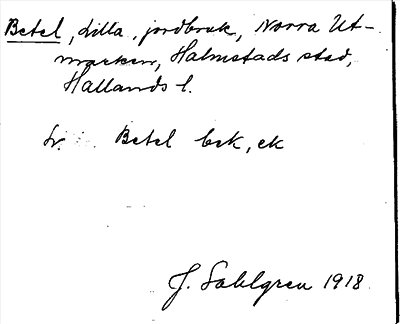 Betel, Lilla, jordbruk, Norra Ut-
marken, Halmstads stad,
Hallands l.
Sv. Betel bek, ek
J. Sahlgren 1918